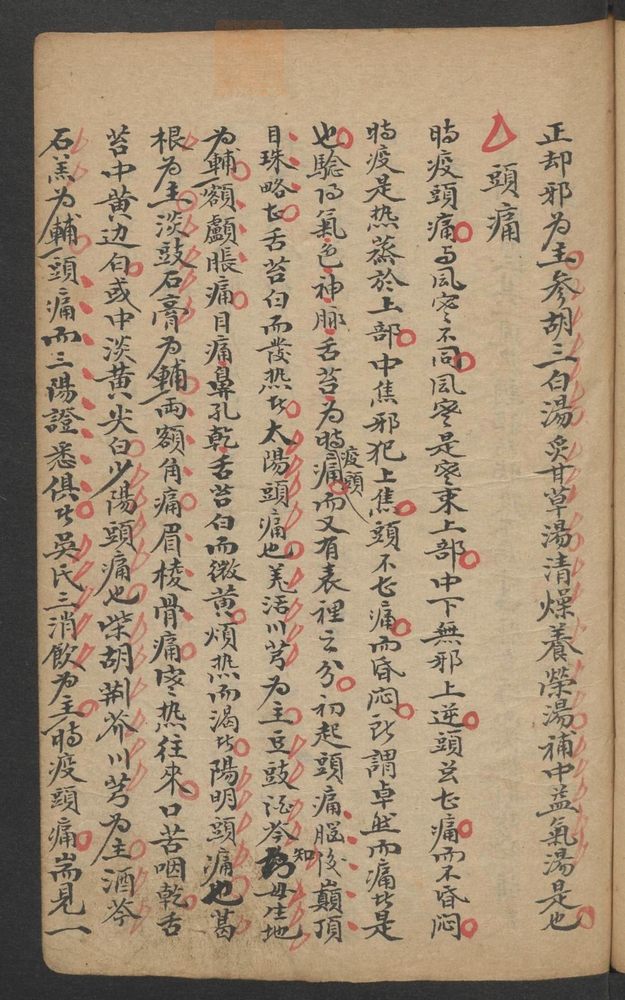 正却邪為主參胡三白湯炙甘草湯清燥養榮湯補中益氣湯是也
頭痛
時疫頭痛与風寒不同風寒是寒束上部中下無邪上逆頭雖痛而不昏悶
時疫是熱蒸於上部中焦邪犯上焦頭不痛而昏悶所謂卓然而痛者是
也驗得氣色神脈舌苔為時疫頭痛而又有表裡之分初起頭痛腦後巔頂
目珠略舌苔白而發热者太陽頭痛也羌活川芎為主豆豉酒芩知母生地
為輔額顱脹痛目痛鼻孔乾舌苔白而微黄煩热而渴者陽明頭痛也葛
根為主淡豉石膏為輔両額角痛眉棱骨痛寒热往來口苦咽乾舌
苔中黄边白或中淡黄尖白少陽頭痛也柴胡荆芥川芎為主酒芩
石羔為輔頭痛而三陽證悉俱者吳氏三消飲為主時疫頭痛耑見一